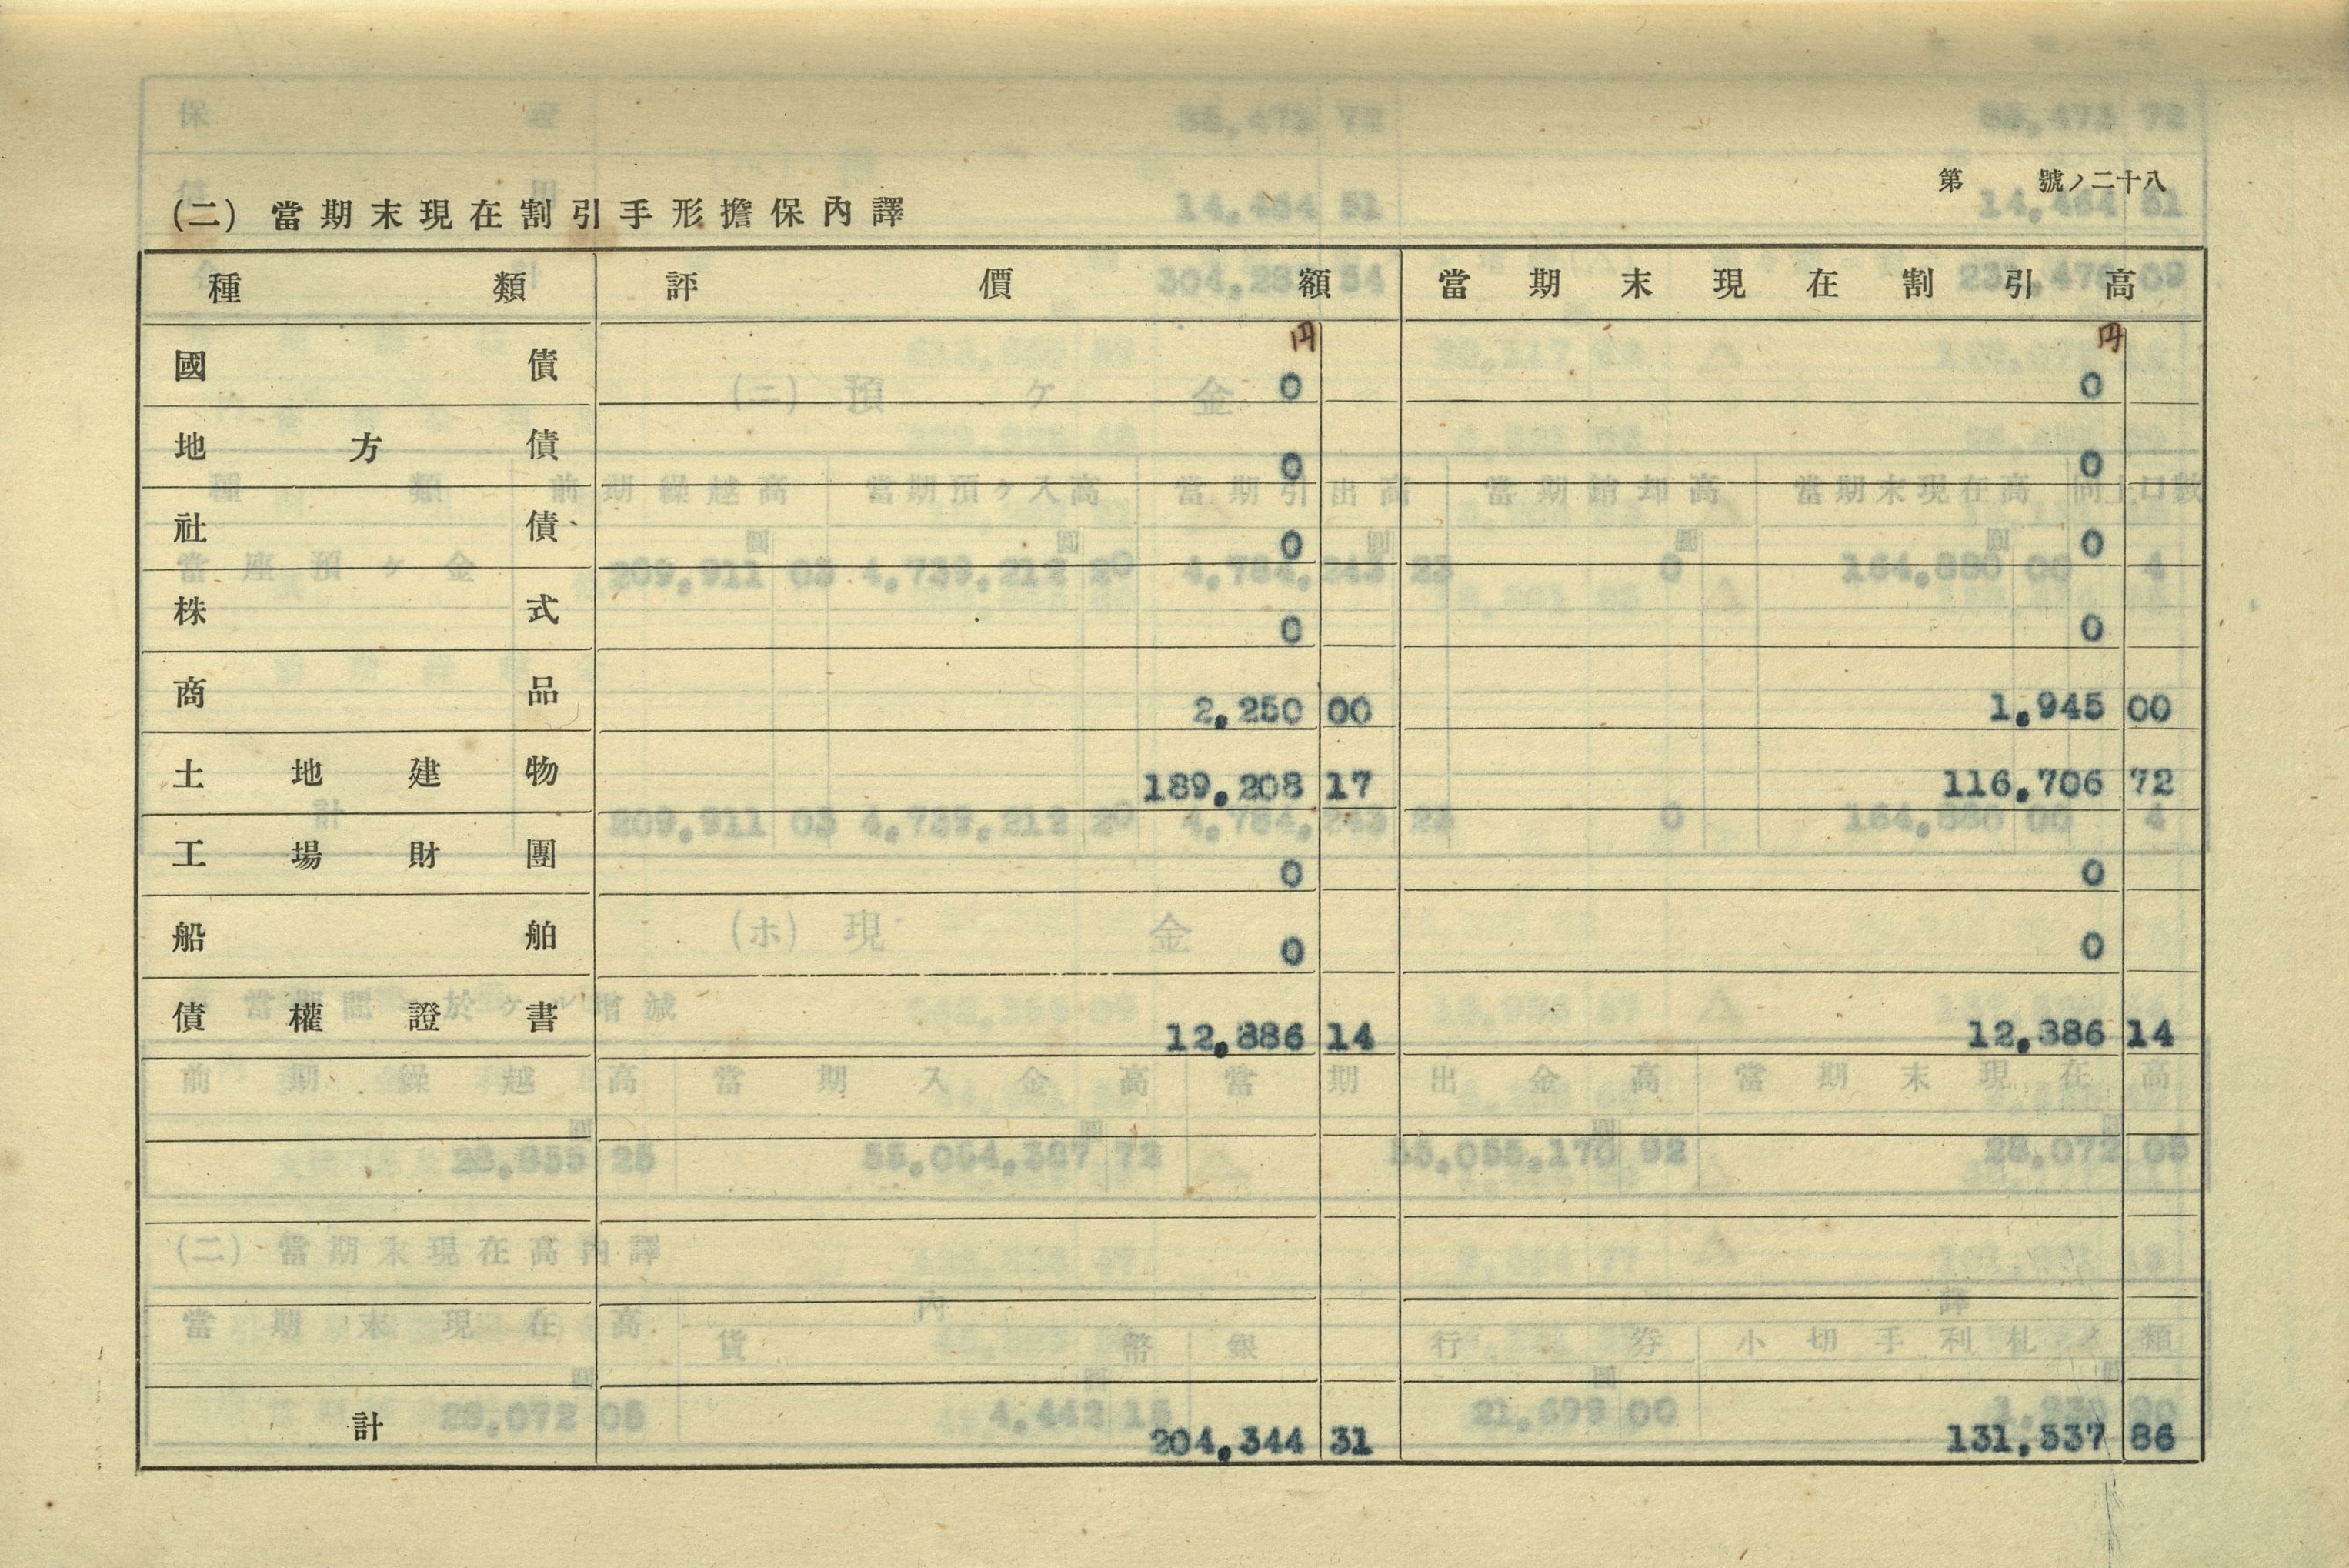 第 號ノ二十八
(二) 當期末現在割引手形擔保內譯
種類 評價額 當期末現在割引高
円 円
國債 0 0
地方債 0 0
社債 0 0
株式 0 0
商品 2,250 00 1,945 00
土地建物 189,208 17 116,706 72
工場財團 0 0
船舶 0 0
債權證書 12,886 14 12,886 14
計 204,344 31 131,537 86